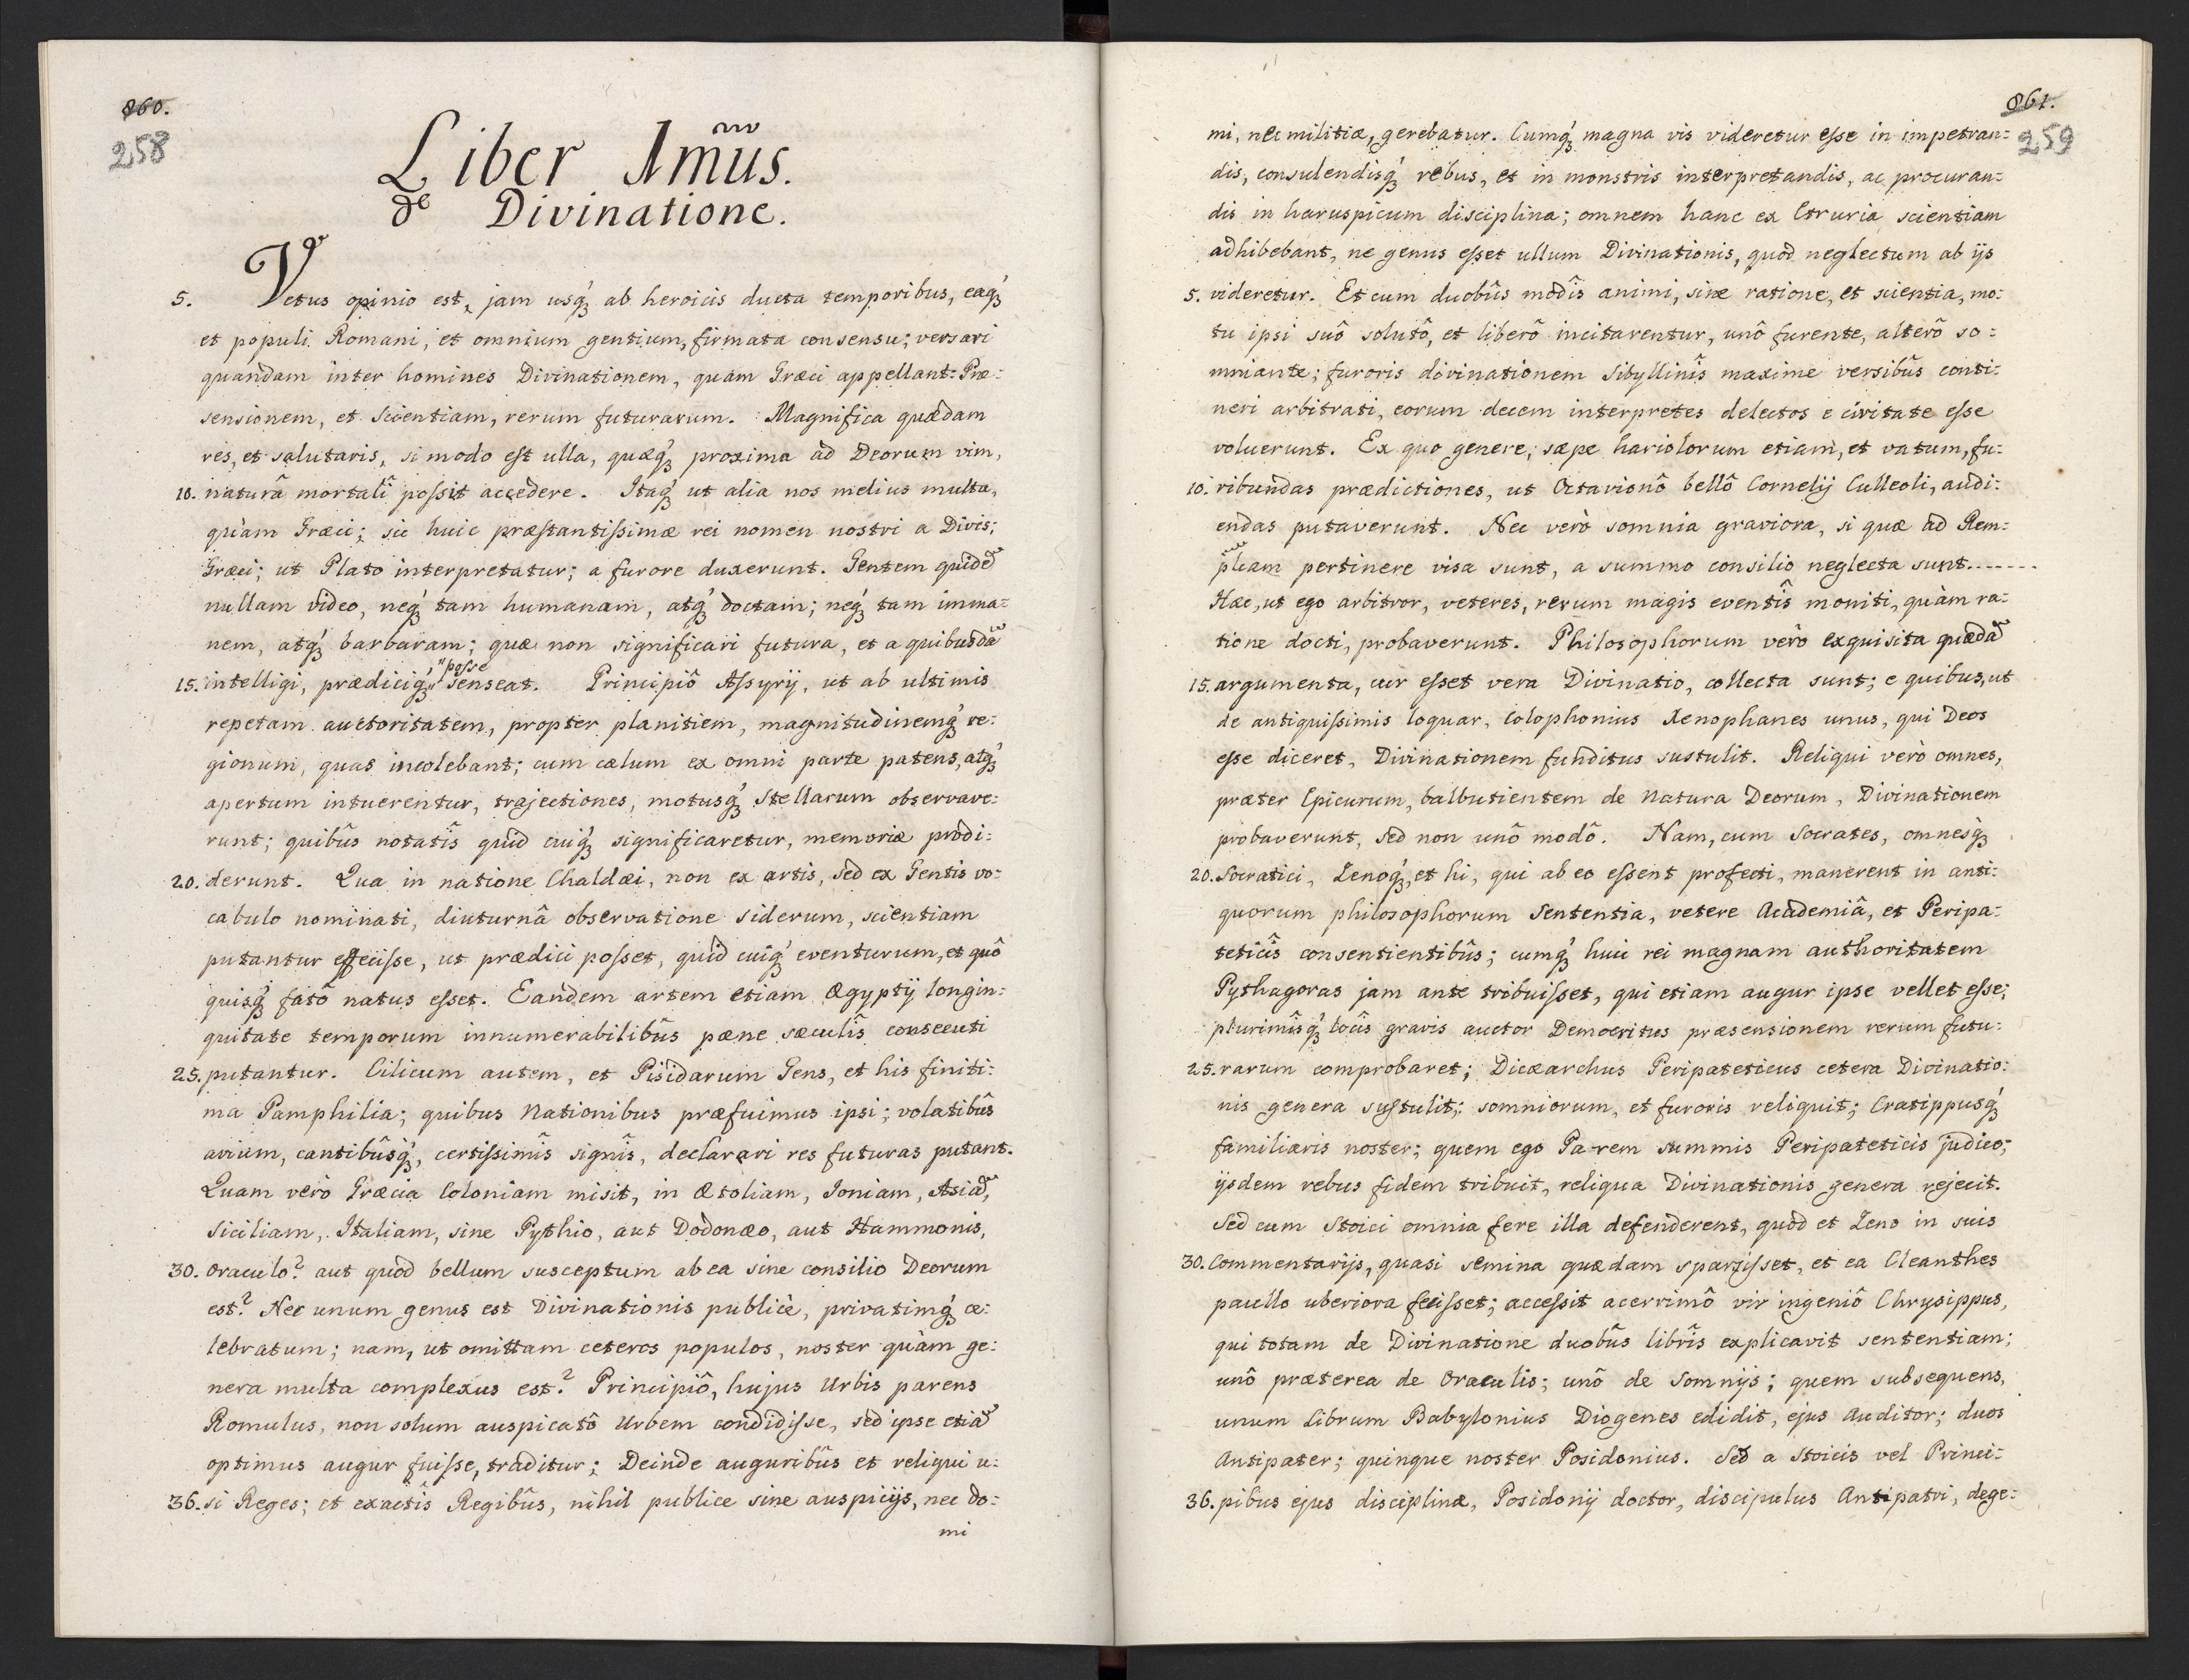 860.
258
Liber Imus.
de Divinatione.
5. Vetus opinio est, jam usq́ꝫ ab heroicis ducta temporibus, eaq́ꝫ
et populi Romani, et omnium gentium, firmata consensu; versari
quandam inter homines Divinationem, quam Græci appellant: Præ:
sensionem, et Scientiam, rerum futurarum. Magnifica quædam
res, et salutaris, si modo est ulla, quæq́ꝫ proxima ad Deorum vim,
10. naturâ mortalî possit accedere. Itaq́ꝫ ut alia nos melius multa,
quàm Græci; sic huic præstantissimæ rei nomen nostri a Divis;
Græci; ut Plato interpretatur; a furore duxerunt. Gentem quidẽ
nullam video, neq́ꝫ tam humanam, atq́ꝫ doctam; neq́ꝫ tam imma:
nem, atq́ꝫ barbaram; quæ non significari futura, et a quibusdã
15. intelligi, prædiciq́ꝫ "posse" censeat. Principiô Assyrij, ut ab ultimis
repetam auctoritatem, propter planitiem, magnitudinemq́ꝫ re:
gionum, quas incolebant; cum cælum ex omni parte patens, atq́ꝫ
apertum intuerentur, trajectiones, motusq́ꝫ Stellarum observave:
runt; quibûs notatîs quid cuiq́ꝫ significaretur, memoriæ prodi:
20. derunt. Qua in natione Chaldæi, non ex artis, sed ex Gentis vo:
cabulo nominati, diuturnâ observatione siderum, scientiam
putantur effecisse, ut prædici posset, quid cuiq́ꝫ eventurum, et quô
quisq́ꝫ fatô natus esset. Eandem artem etiam Ægyptij longin:
quitate temporum innumerabilibûs pæne sæculîs consecuti
25. putantur. Cilicum autem, et Pisidarum Gens, et his finiti:
ma Pamphilia; quibus Nationibus præfuimus ipsi; volatibûs
avium, cantibûsq́ꝫ, certissimîs signîs, declarari res futuras putant.
Quam verò Græcia Coloniam misit, in Ætoliam, Joniam, Asiã,
Siciliam, Italiam, sine Pythio, aut Dodonæo, aut Hammonis,
30. Oraculo? aut quod bellum susceptum ab ea sine consilio Deorum
est? Nec unum genus est Divinationis publicè, privatimq́ꝫ ce:
lebratum; nam, ut omittam ceteros populos, noster quàm ge:
nera multa complexus est? Principiô, hujus Urbis parens
Romulus, non solum auspicatô Urbem condidisse, sed ipse etiã
optimus augur fuisse, traditur; Deinde auguribûs et reliqui u:
36. si Reges; et exactîs Regibûs, nihil publice sine auspicijs, nec do:
mi
861.
259
mi, nec militiæ, gerebatur. Cumq́ꝫ magna vis videretur esse in impetran:
dis, consulendisq́ꝫ rebus, et in monstris interpretandis, ac procuran:
dis in haruspicum disciplina; omnem hanc ex Etruria scientiam
adhibebant, ne genus esset ullum Divinationis, quod neglectum ab ijs
5. videretur. Et cum duobûs modîs animi, sine ratione, et scientia, mo:
tu ipsi suô solutô, et liberô incitarentur, unô furente, alterô so:
mniante; furoris divinationem Sibyllinîs maxime versibûs conti:
neri arbitrati, eorum decem interpretes delectos e civitate esse
voluerunt. Ex quo genere, sæpe hariolorum etiam, et vatum, fu:
10. ribundas prædictiones, ut Octavionô bellô Cornelij Culleoli, audi:
endas putaverunt. Nec verò somnia graviora, si quæ ad Rem:
plicam pertinere visa sunt, a summo consilio neglecta sunt.......
Hæc, ut ego arbitror, veteres, rerum magis eventîs moniti, quàm ra:
tione docti, probaverunt. Philosophorum verò exquisita quædã
15. argumenta, cur esset vera Divinatio, collecta sunt; e quibus, ut
de antiquissimis loquar, Colophonius Xenophanes unus, qui Deos
esse diceret, Divinationem funditus sustulit. Reliqui verò omnes,
præter Epicurum, balbutientem de Natura Deorum, Divinationem
probaverunt, sed non unô modô. Nam, cum Socrates, omnesq́ꝫ
20. Socratici, Zenoq́ꝫ, et hi, qui ab eo essent profecti, manerent in anti:
quorum philosophorum Sententia, vetere Academiâ, et Peripa:
teticîs consentientibûs; cumq́ꝫ huic rei magnam authoritatem
Pythagoras jam ante tribuisset, qui etiam augur ipse vellet esse;
plurimîsq́ꝫ locîs gravis auctor Democritus præsensionem rerum futu:
25. rarum comprobaret; Dicæarchus Peripateticus cetera Divinatio:
nis genera sustulit; somniorum, et furoris reliquit; Cratippusq́ꝫ
familiaris noster; quem ego Parem summis Peripateticis judico;
ijsdem rebus fidem tribuit, reliqua Divinationis genera rejecit.
Sed cum Stoici omnia fere illa defenderent, quod et Zeno in suis
30. Commentarijs, quasi semina quædam sparsisset, et ea Cleanthes
paullo uberiora fecisset; accessit acerrimô vir ingeniô Chrysippus,
qui totam de Divinatione duobûs librîs explicavit sententiam;
unô præterea de Oraculis; unô de Somnijs; quem subsequens,
unum Librum Babylonius Diogenes edidit, ejus Auditor; duos
Antipater; quinque noster Posidonius. Sed a Stoicis vel Princi:
36. pibus ejus disciplinæ, Posidonij doctor, discipulus Antipatri, dege: